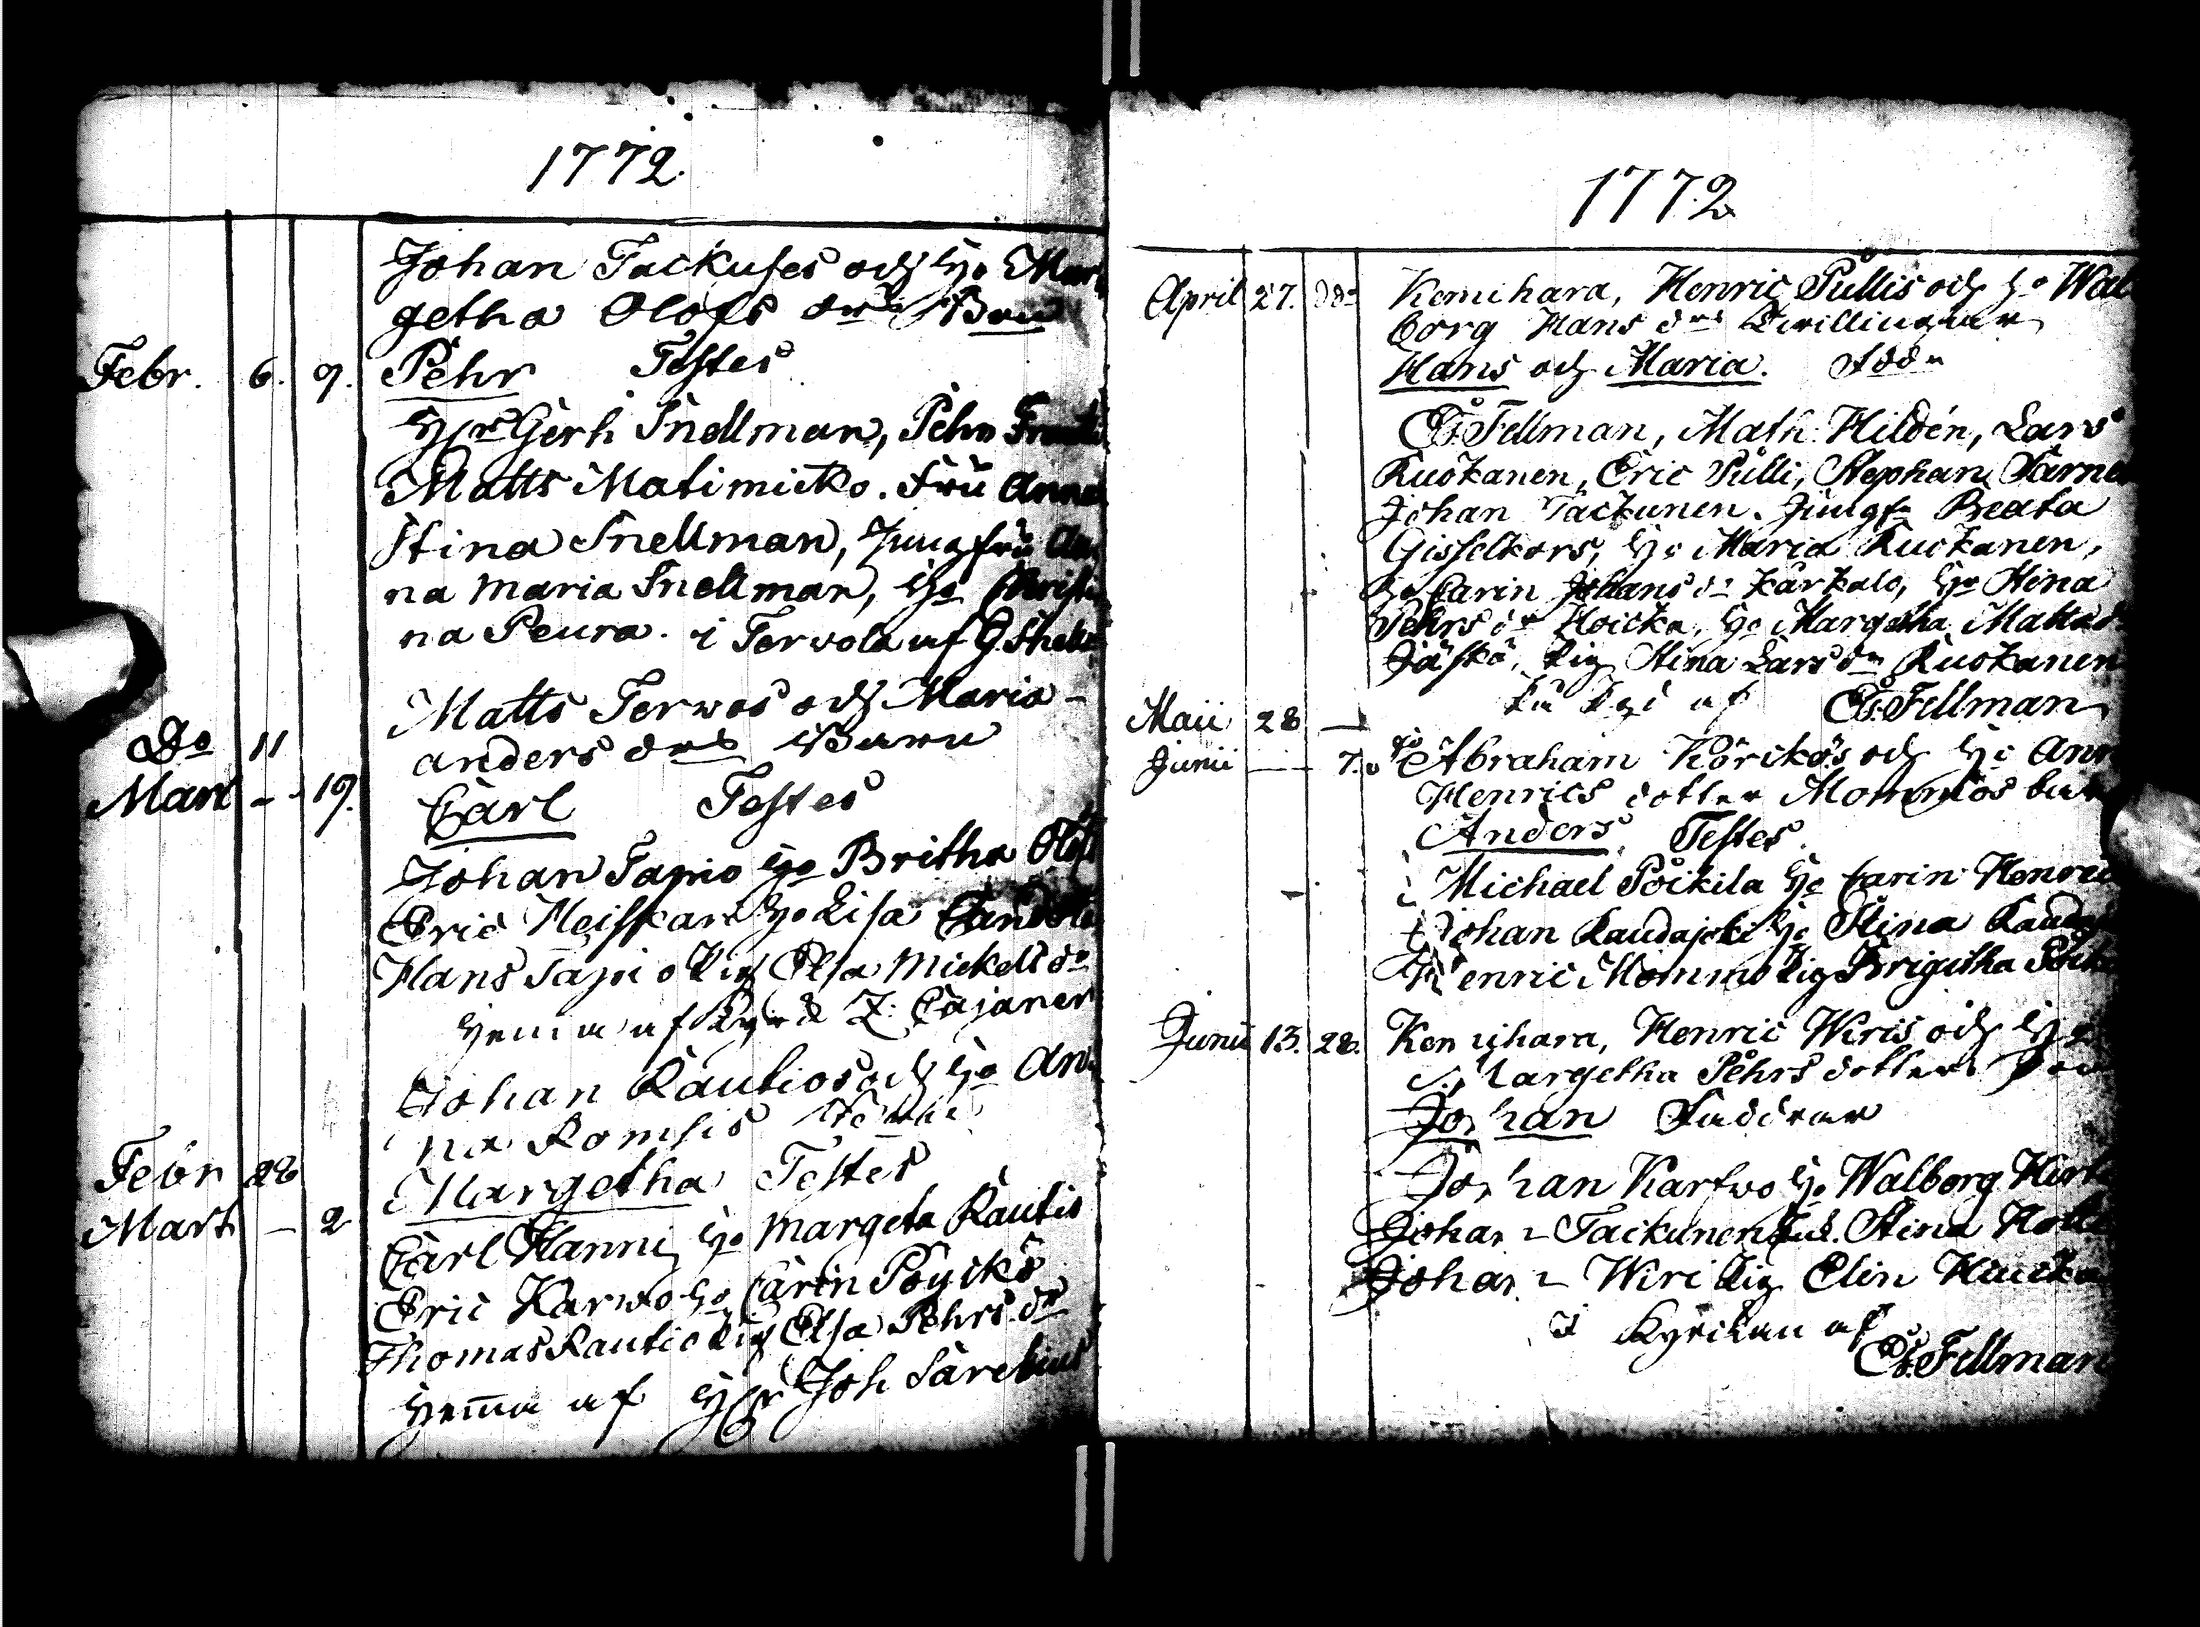 1772.
Johan Tackuses och Ho Mar
getha Olofs drs Barn
Febr. 6. 9. Pehr Testes
Hr Gerh Snellman, Pehr
Matts Matimicko. Fru Anna
Stina Snellman, Jungfru An
na Maria Snellman, Ho Christi
na Peura. i Terwola af G. Snell
Matts Terwos och Maria
Do 11 anders drs Barn
Mart - - 19. Carl Testes
Johan Tapio Ho Britha Olofs
Eric Heiskari Ho Lisa
Hans Tapio Pig Elsa Mickels dr
Hema af Z. Cajaner
Johan Rautios och Ho An
na Romsis
Febr 28 Margetha Testes
Mart - 2 Carl Hanni Ho Margeta Rautio
Eric Karwo Ho Carin Pöyckö
Thomas Rautio Pig Elsa Pehrs dr
Hema af Hr Joh Sarelius
1772
April 27. ddo Kemihara, Henric Pullis och Ho Wal
borg Hans drs Twillingar
Hans och Maria.
Es. Fellman, Math. Hildén, Lars
Kuokanen, Eric Pulli, Stephan Särne
Johan Tackunen. Jungfr Beata
Gisselkors, Ho Maria Kuokanen,
Ho Carin Johans dr Karkalo, Ho Stina
Pehrs dr Hoicka, Ho Margetha Matts d
Jäskö, Pig Stina Lars dr Kuokanen
af Es. Fellman
Maii 28 -
Junii - 7. Abraham Körckös och Ho Ann
Henrics dotter Mommos barn
Anders. Testes.
Michael Poikila Ho Carin Henrics
Johan Raudajoki Ho Stina Raudaj
Henric Mommo Pig Brigitha Poik
Junii 13. 28. Kemihara, Henric Wiris och Ho
Margetha Pehrs dotters
Johan Faddrar
Johan Kartwo Ho Walborg
Johan Tackunen Stina
Johan Wiri Pig Elin
I Kyrckan af
Es. Fellman